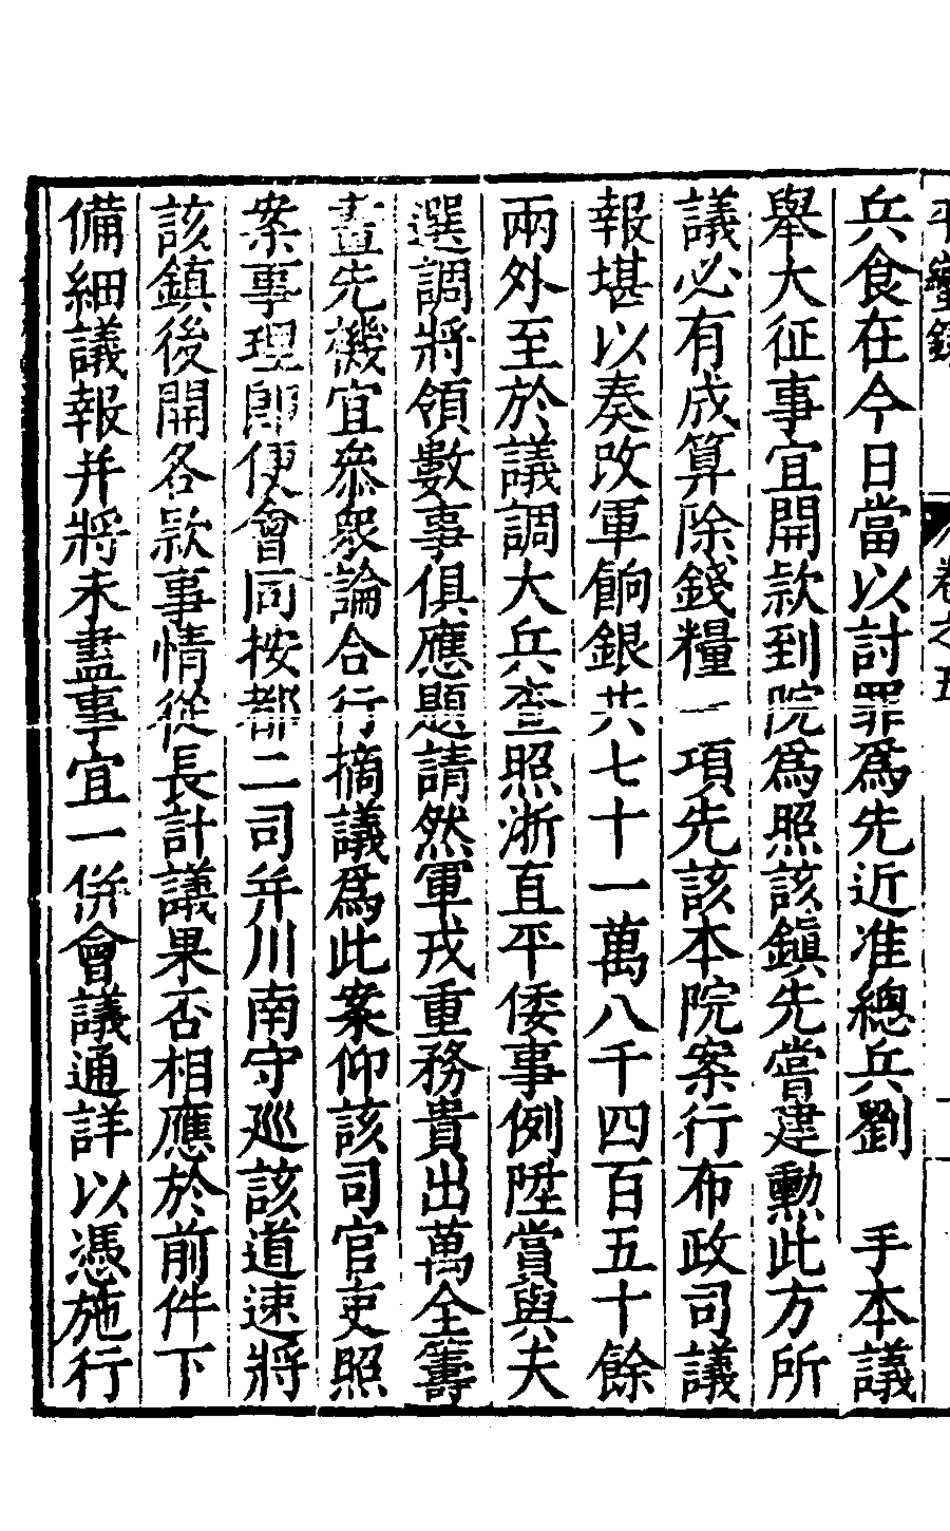 平蠻錄 卷之五
兵食在今日當以討罪爲先近准總兵劉 手本議
舉大征事宜開款到院爲照該鎭先嘗建勲此方所
議必有成算除錢糧一項先該本院案行布政司議
報堪以奏改軍餉銀共七十一萬八千四百五十餘
兩外至於議調大兵查照浙直平倭事例陞賞與夫
選調將領數事俱應題請然軍戎重務貴出萬全籌
畫先機宜叅衆論合行摘議爲此案仰該司官吏照
案事理卽便會同按都二司并川南守巡該道速將
該鎮後開各款事情從長計議果否相應於前件下
備細議報并將未盡事宜一併會議通詳以憑施行